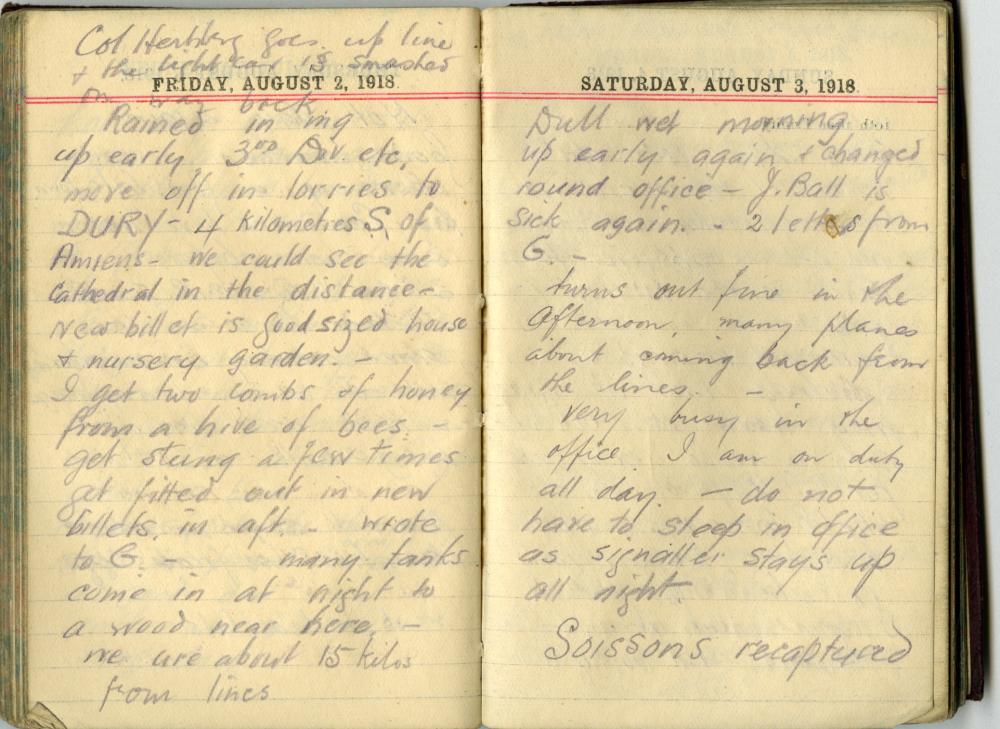 Col Hertberg goes up line
& the light car is smashed
FRIDAY, AUGUST 2, 1918.
on way back
Rained in mg
up early 3RD Div. etc,
move off in lorries to
DURY - 4 kilometres S. of
Amiens - we could see the
Cathedral in the distance -
New billet is good sized house
& nursery garden. -
I get two combs of honey
from a hive of bees. -
get stung a few times
get fitted out in new
billets. in aft. - wrote
to G. - many tanks
come in at night to
a wood near here. -
we are about 15 kilos
from lines
SATURDAY, AUGUST 3, 1918.
Dull wet morning
up early again & changed
round office - J. Ball is
sick again. - 2 letters from
G. -
turns out fine in the
afternoon, many planes
about coming back from
the lines. -
very busy in the
office. I am on duty
all day. - do not
have to sleep in office
as signaller stays up
all night.
Soissons recaptured